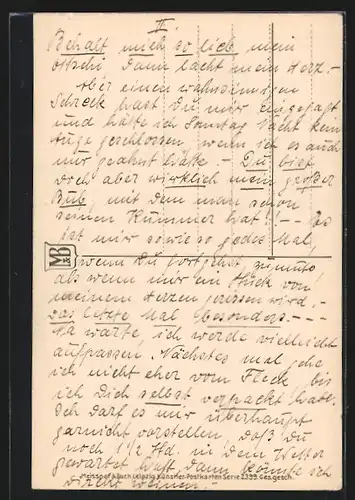 II.
Behalt mich so lieb mein
dann lacht mein Herz. -
Aber einen wahnsinnigen
Schreck hast Du mir eingejagt
und hätte ich Sonntag Nacht kein
Auge geschlossen, wenn ich es auch
nur geahnt hätte. - Du bist
doch aber wirklich mein großer
Bub, mit dem man schon
seinen Kummer hat! - - Es
ist mir sowieso jedes Mal,
wenn Du fortgehst zumute
als wenn mir ein Stück von
meinem Herzen gerissen wird. -
Das letzte Mal besonders. - - -
Na warte, ich werde vielleicht
aufpassen. Nächstes mal gehe
ich nicht eher vom Fleck, bis
ich Dich selbst verpackt habe.
Ich darf es mir überhaupt
garnicht vorstellen, daß Du
noch 1 1/2 Std. in dem Wetter
gewartet hast, dann könnte ich
weinen. -
Meissner & Buch Leipzig Künstler-Postkarten Serie 2339. Ges. gesch.
M&B